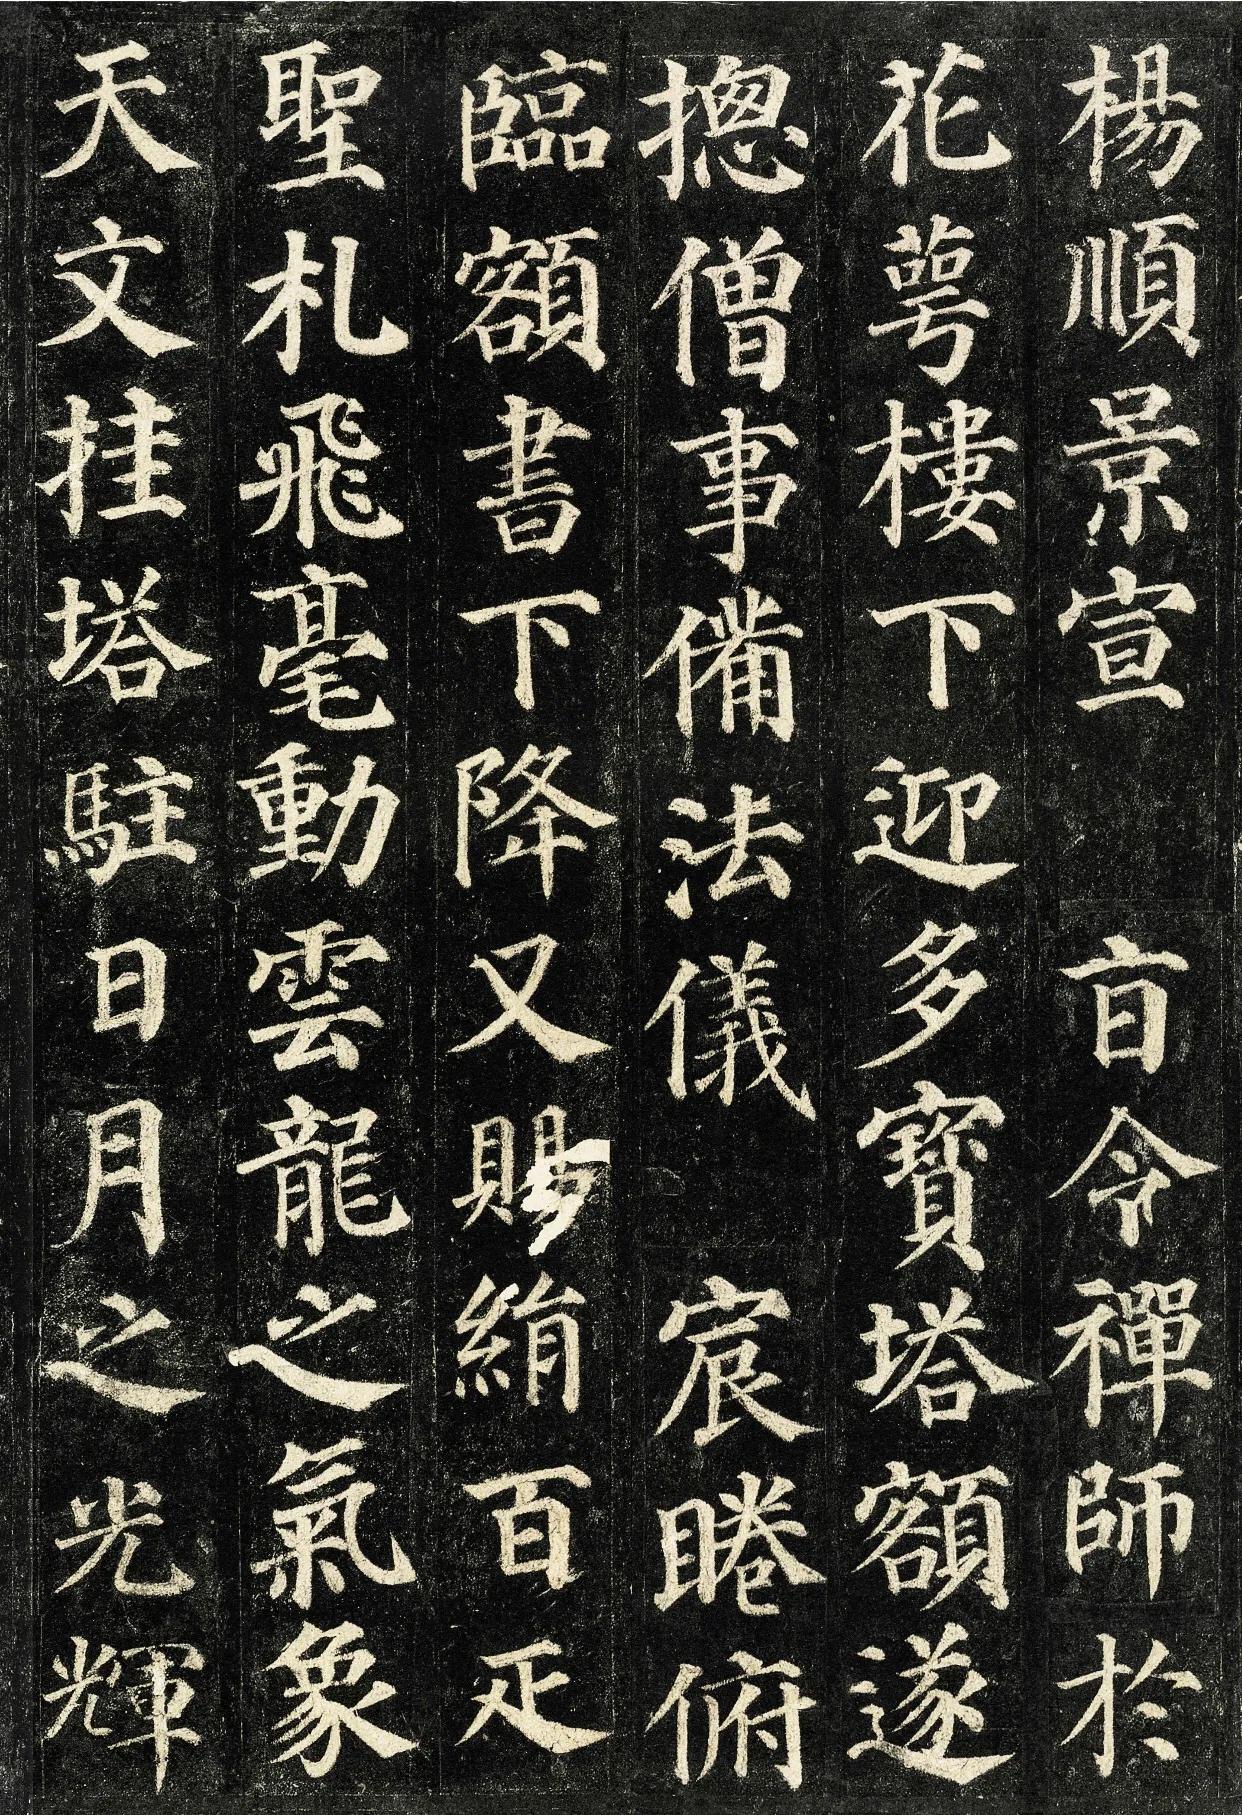 楊順景宣 㫖令禪師於
花萼樓下迎多寶塔額遂
揔僧事俻法儀 宸睠俯
臨額書下降又賜絹百疋
聖札飛毫動雲龍之氣象
天文挂塔駐日月之光輝